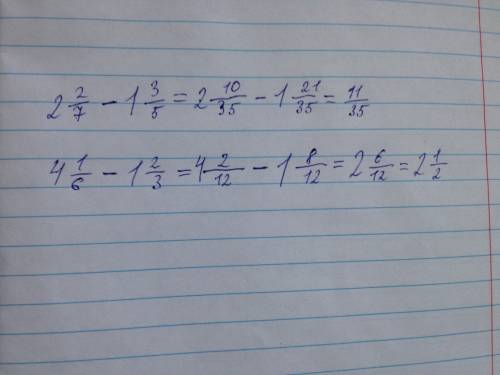 2 2/7 - 1 3/5 = 2 10/35 - 1 21/35 = 11/35
4 1/6 - 1 2/3 = 4 2/12 - 1 8/12 = 2 6/12 = 2 1/2